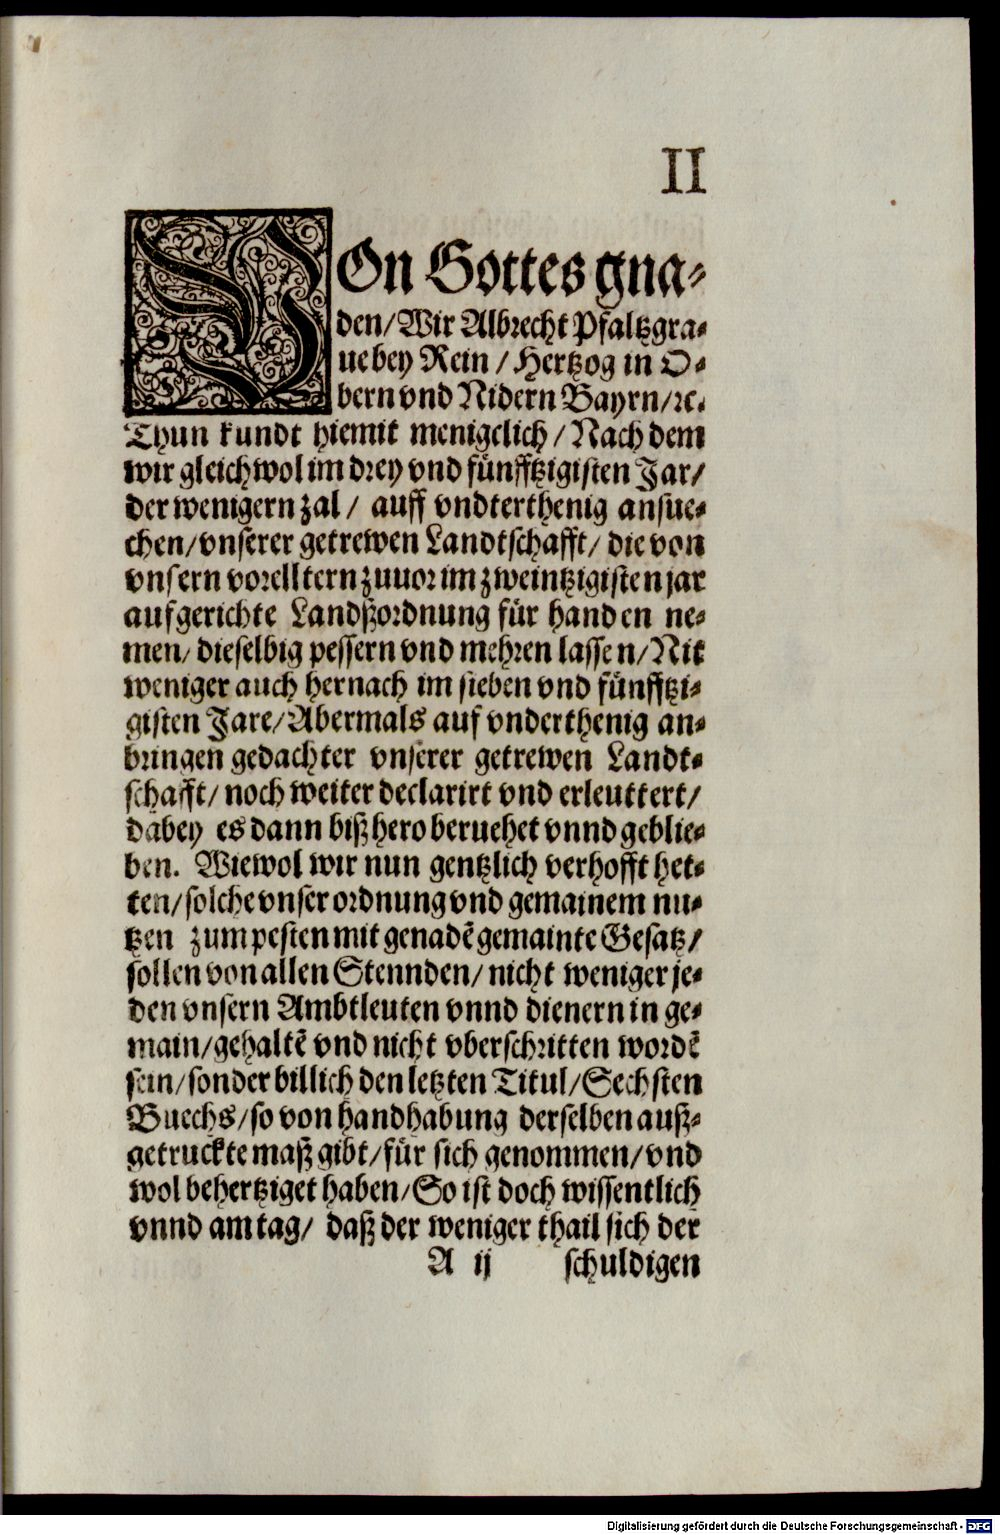 II
VOn Gottes gna-
den/Wir Albrecht Pfaltzgra-
ue bey Rein/Hertzog in O-
bern vnd Nidern Bayrn/ꝛc.
Thun kundt hiemit menigclich/Nach dem
wir gleichwol im drey vnd fünfftzigisten Jar/
der wenigern zal/ auff vndterthenig ansue-
chen/vnserer getrewen Landtschafft/ die von
vnsern vorelltern zuuor im zweintzigisten jar
aufgerichte Landßordnung für handen ne-
men/ dieselbig pessern vnd mehren lassen/Nit
weniger auch hernach im sieben vnd fünfftzi-
gisten Jare/Abermals auf vnderthenig an-
bringen gedachter vnserer getrewen Landt-
schafft/ noch weiter declarirt vnd erleuttert/
dabey es dann bißhero beruehet vnnd geblie-
ben. Wiewol wir nun gentzlich verhofft het-
ten/solche vnser ordnung vnd gemainem nu-
tzen zum pesten mit genadē gemainte Gesatz/
sollen von allen Stennden/ nicht weniger je-
den vnsern Ambtleuten vnnd dienern in ge-
main/gehaltē vnd nicht vberschritten wordē
sein/sonder billich den letzten Titul/Sechsten
Buechs/so von handhabung derselben auß-
getruckte maß gibt/für sich genommen/vnd
wol behertziget haben/So ist doch wissentlich
vnnd am tag/ daß der weniger thail sich der
A ij schuldigen
Digitalisierung gefördert durch die Deutsche Forschungsgemeinschaft - DFG